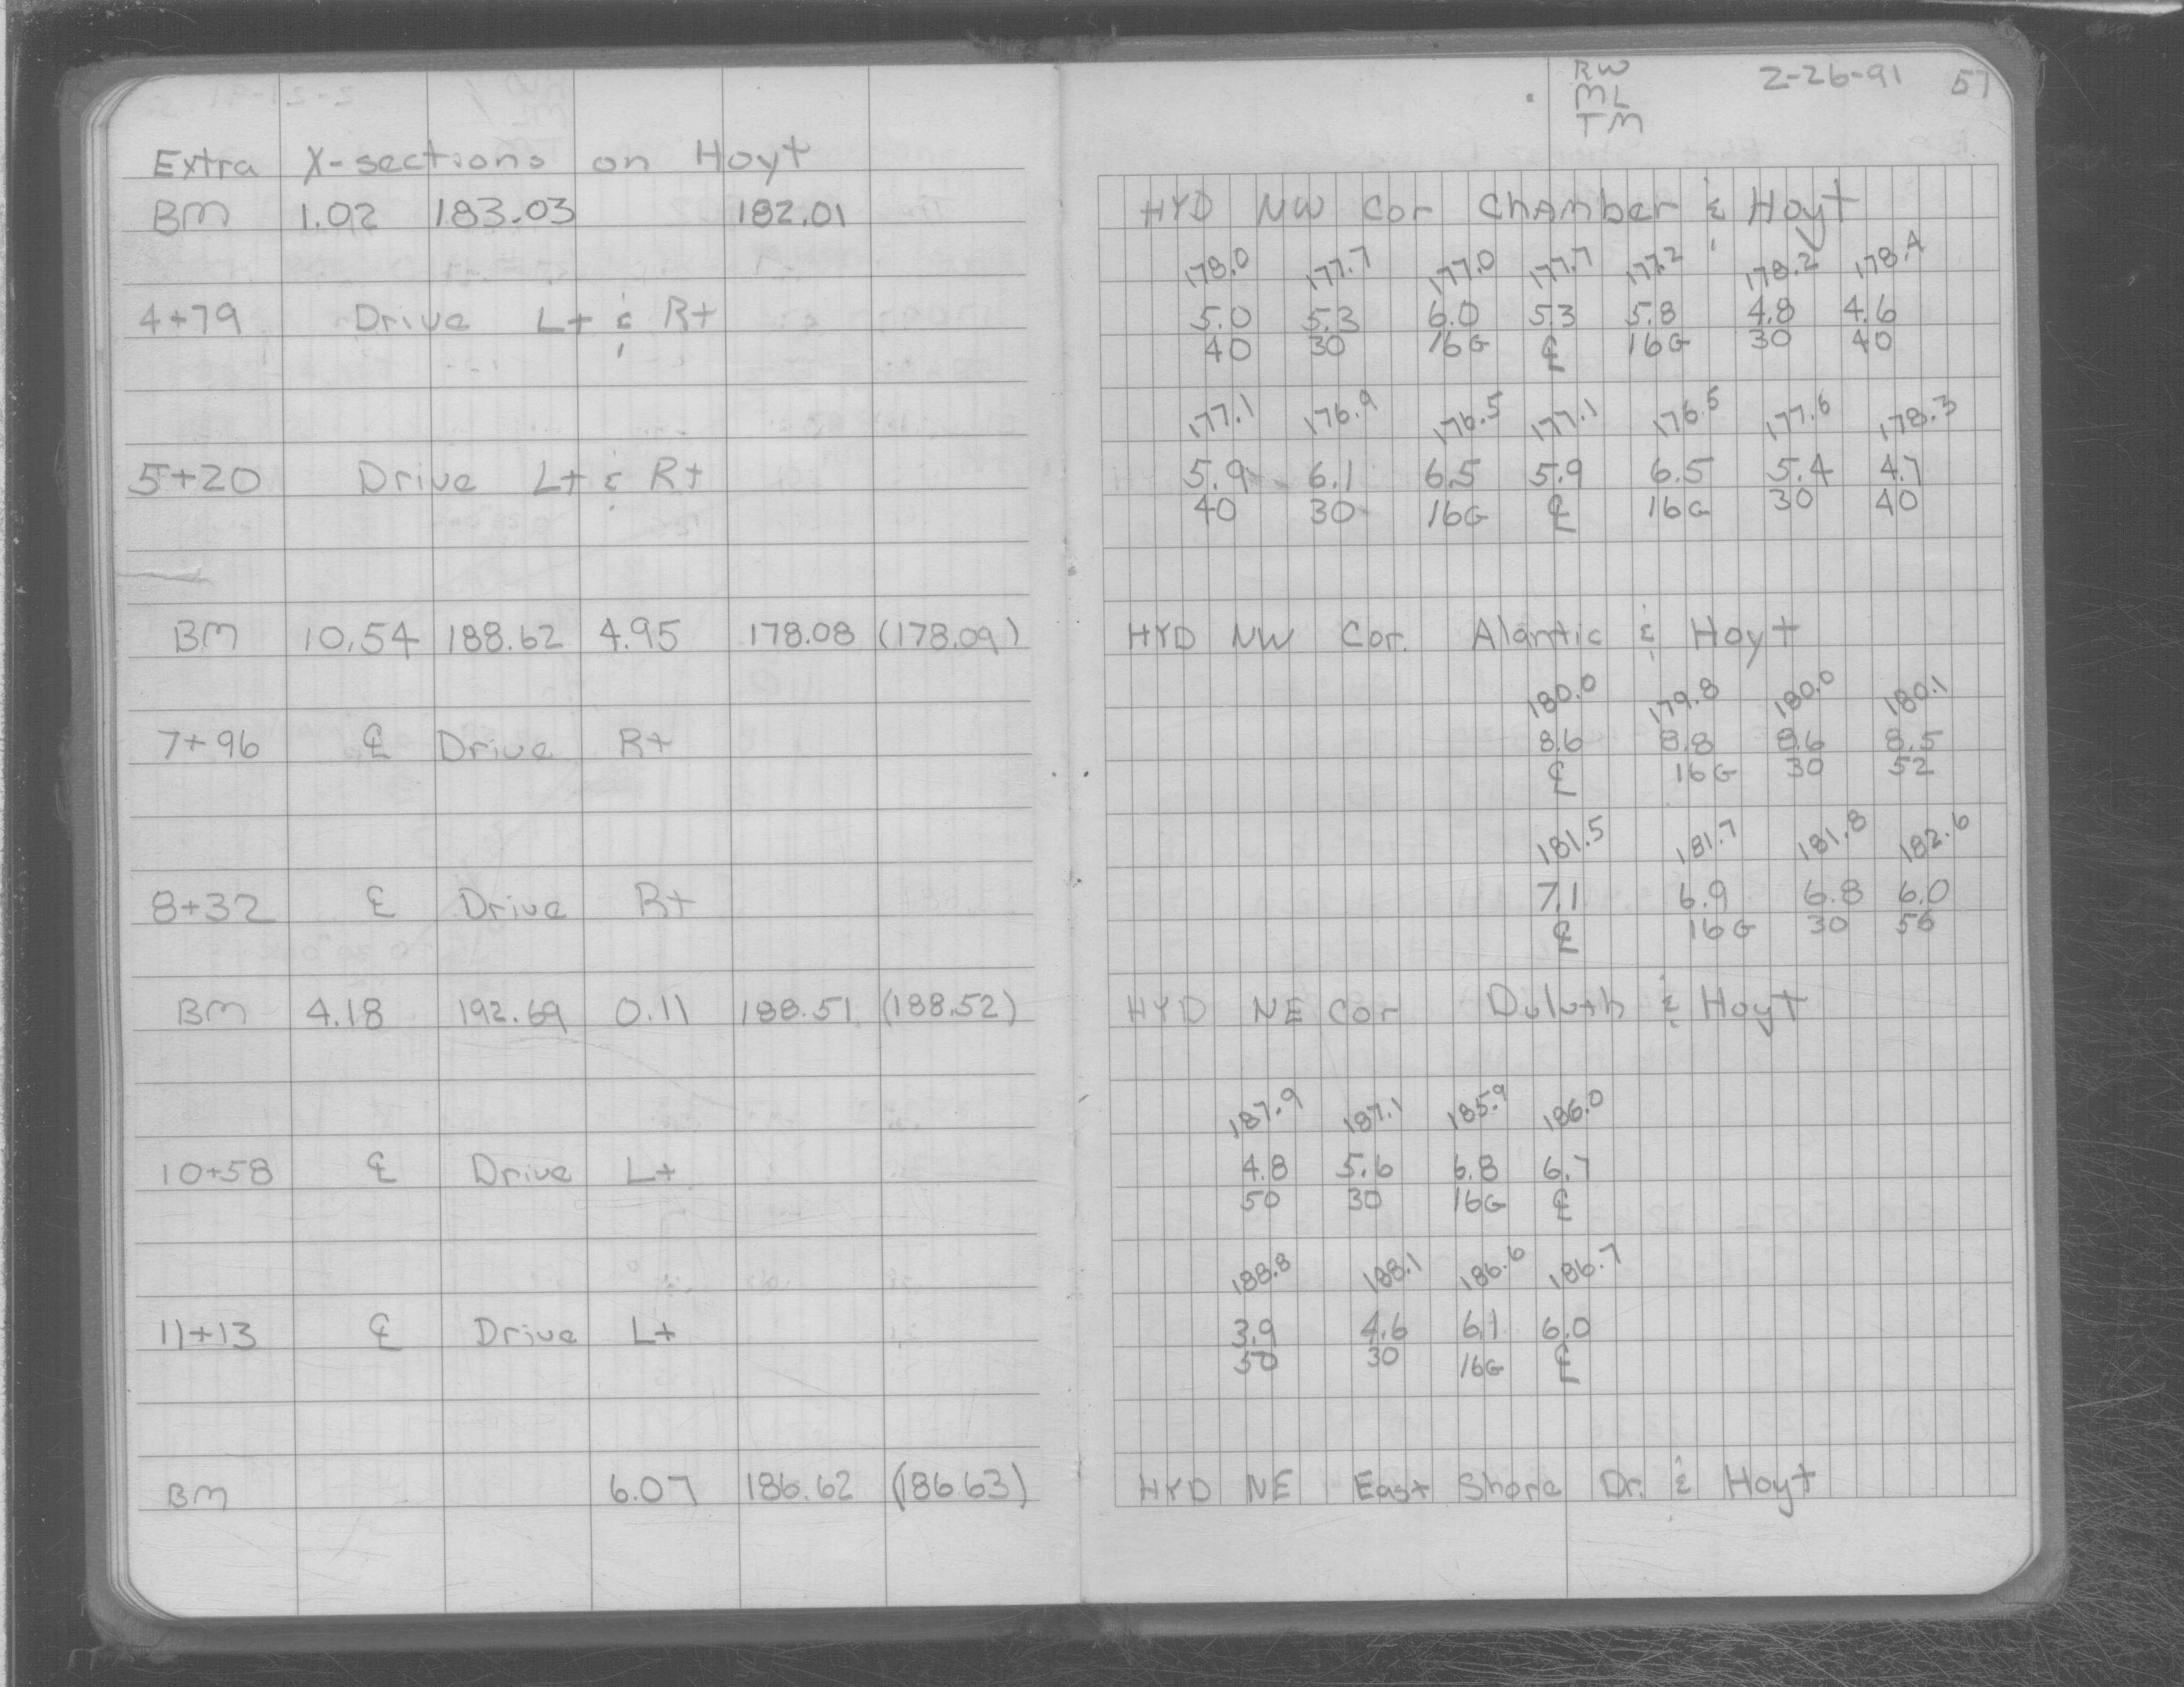 Extra X-sections on Hoyt
BM 1.02 183.03 182.01
4+79 Drive Lt & Rt
5+20 Drive Lt & Rt
BM 10.54 188.62 4.95 178.08 (178.09)
7+96 ℄ Drive Rt
8+32 ℄ Drive Rt
BM 4.18 192.69 0.11 188.51 (188.52)
10+58 ℄ Drive Lt
11+13 ℄ Drive Lt
BM 6.07 186.62 (186.63)
RW 2-26-91 57
ML
TM
HYD NW Cor Chamber & Hoyt
178.0 177.7 177.0 177.7 177.2 178.2 178.4
5.0 5.3 6.0 5.3 5.8 4.8 4.6
40 30 16G ℄ 16G 30 40
177.1 176.9 176.5 177.1 176.5 177.6 178.3
5.9 6.1 6.5 5.9 6.5 5.4 4.7
40 30 16G ℄ 16G 30 40
HYD NW Cor. Alantic & Hoyt
180.0 179.8 180.0 180.1
8.6 8.8 8.6 8.5
℄ 16G 30 52
181.5 181.7 181.8 182.6
7.1 6.9 6.8 6.0
℄ 16G 30 56
HYD NE Cor Duluth & Hoyt
187.9 187.1 185.9 186.0
4.8 5.6 6.8 6.7
50 30 16G ℄
188.8 188.1 186.6 186.7
3.9 4.6 6.1 6.0
50 30 16G ℄
HYD NE East Shore Dr. & Hoyt